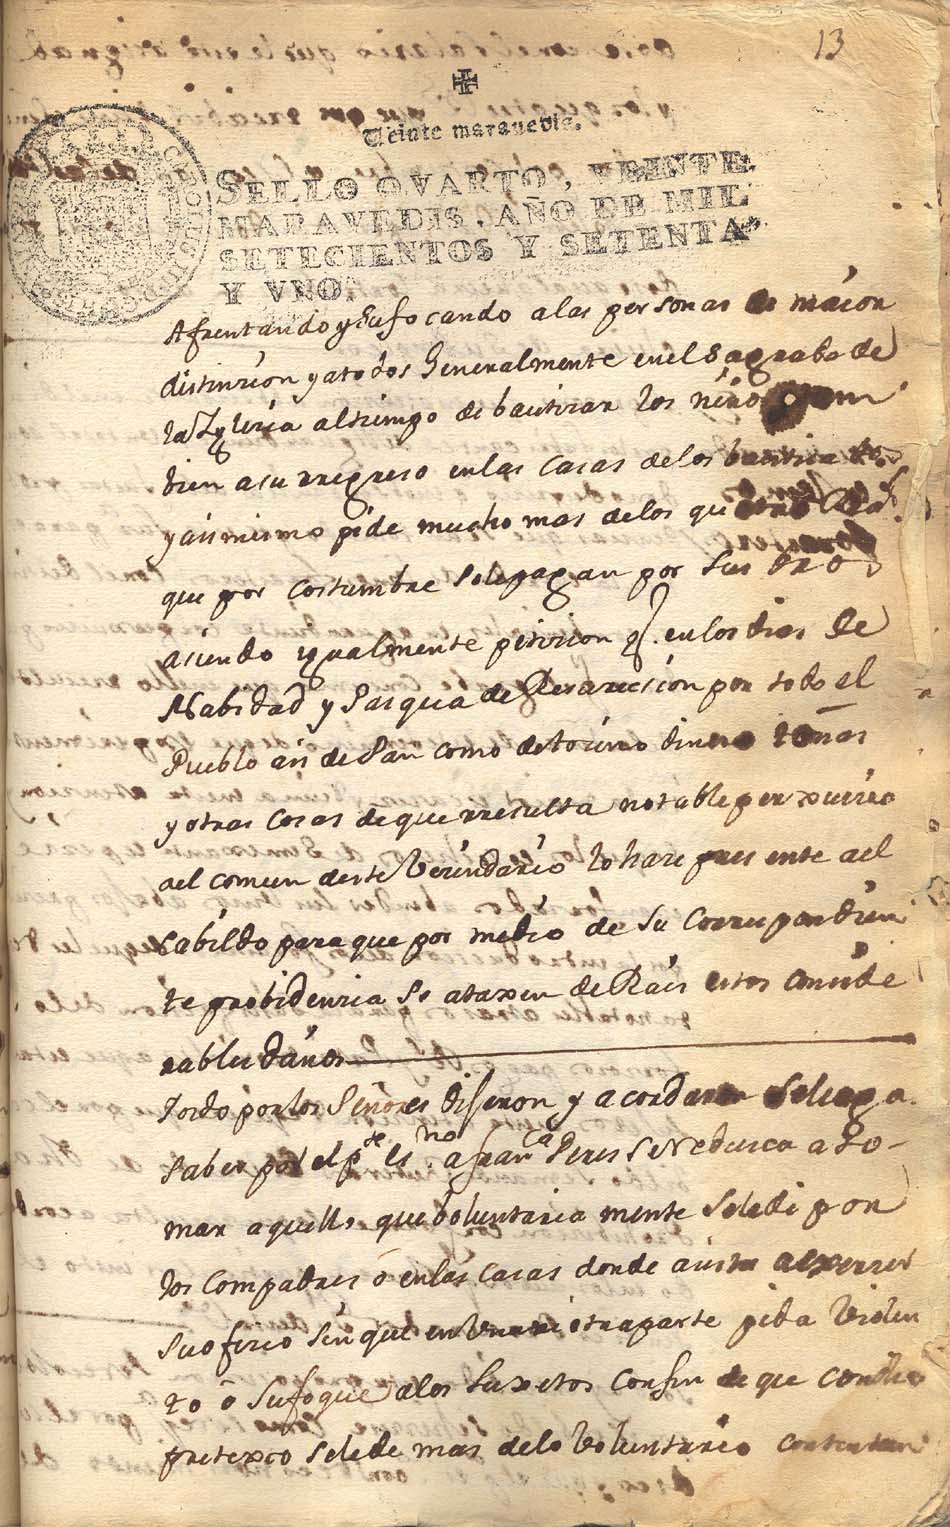 13
Veinte maravedis.
SELLO QVARTO, VEINTE
MARAVEDIS, AÑO DE MIL
SETECIENTOS Y SETENTA
Y VNO.
Afrentando y Sufocando alas personas de maior
distinzíon y atodos Generalmente en el Sagrado de
la Yglecia altiempo de bautizar los niños
bien a su rregreso enlas casas delos bautiza dos
y asimismo pide mucho mas delos quatro
que por costumbre selepagan por sus dros
asiendo ygualmente petision enlos dias de
Nabidad y Pasqua de Resurecsion por todo el
Pueblo asi de Pan como de tosino dinero
y otras cosas de que rresulta notable perxuicio
ael comun deste Vecindario lo hase presente ael
Cabildo para que por medio de su Correspondien
te probidenzia se ataxen de Raís estos conside
rables daños
Todo por los Señores dixeron y acordaron Selehaga
saber por el pte. esno. a franca Peres se Redusca a to-
mar aquello que boluntaria mente Selede por
los compadres ó enlas casas donde asista a exerser
su ofisio sin que en otra parte pida violen
to ó Sufoque alos Suxetos con fin de que con
pretexto selede mas delo Voluntario